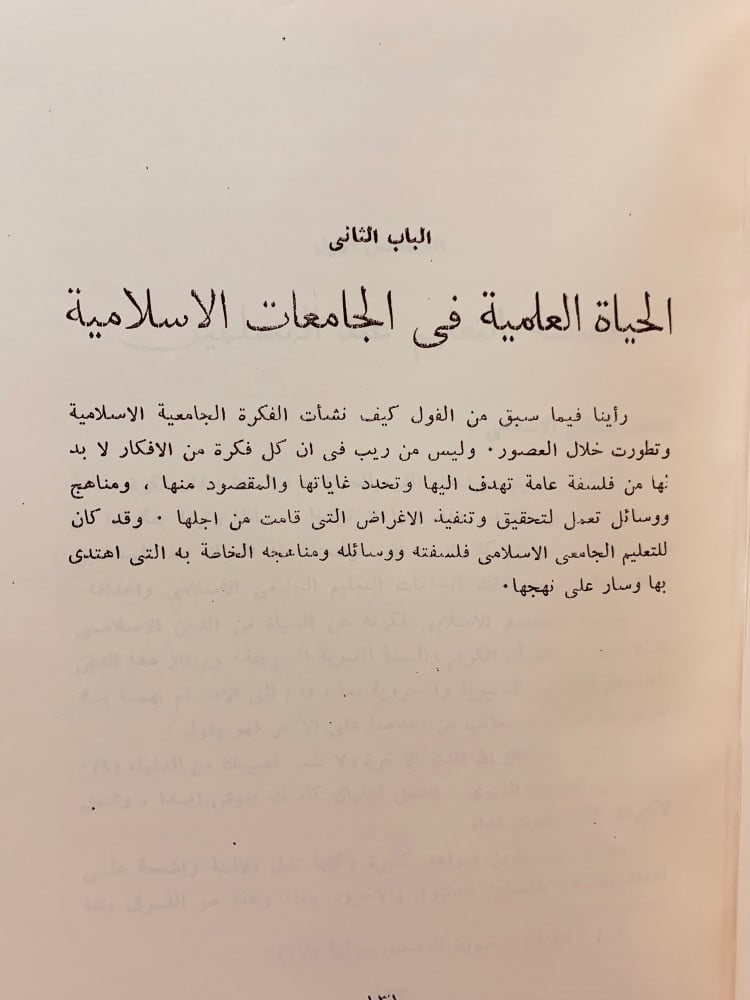 الباب الثانى
الحياة العلمية فى الجامعات الاسلامية
رأينا فيما سبق من القول كيف نشأت الفكرة الجامعية الاسلامية
وتطورت خلال العصور. وليس من ريب فى ان كل فكرة من الافكار لا بد
لها من فلسفة عامة تهدف اليها وتحدد غاياتها والمقصود منها ، ومناهج
ووسائل تعمل لتحقيق وتنفيذ الاغراض التى قامت من اجلها . وقد كان
للتعليم الجامعى الاسلامى فلسفته ووسائله ومناهجه الخاصة به التى اهتدى
بها وسار على نهجها.